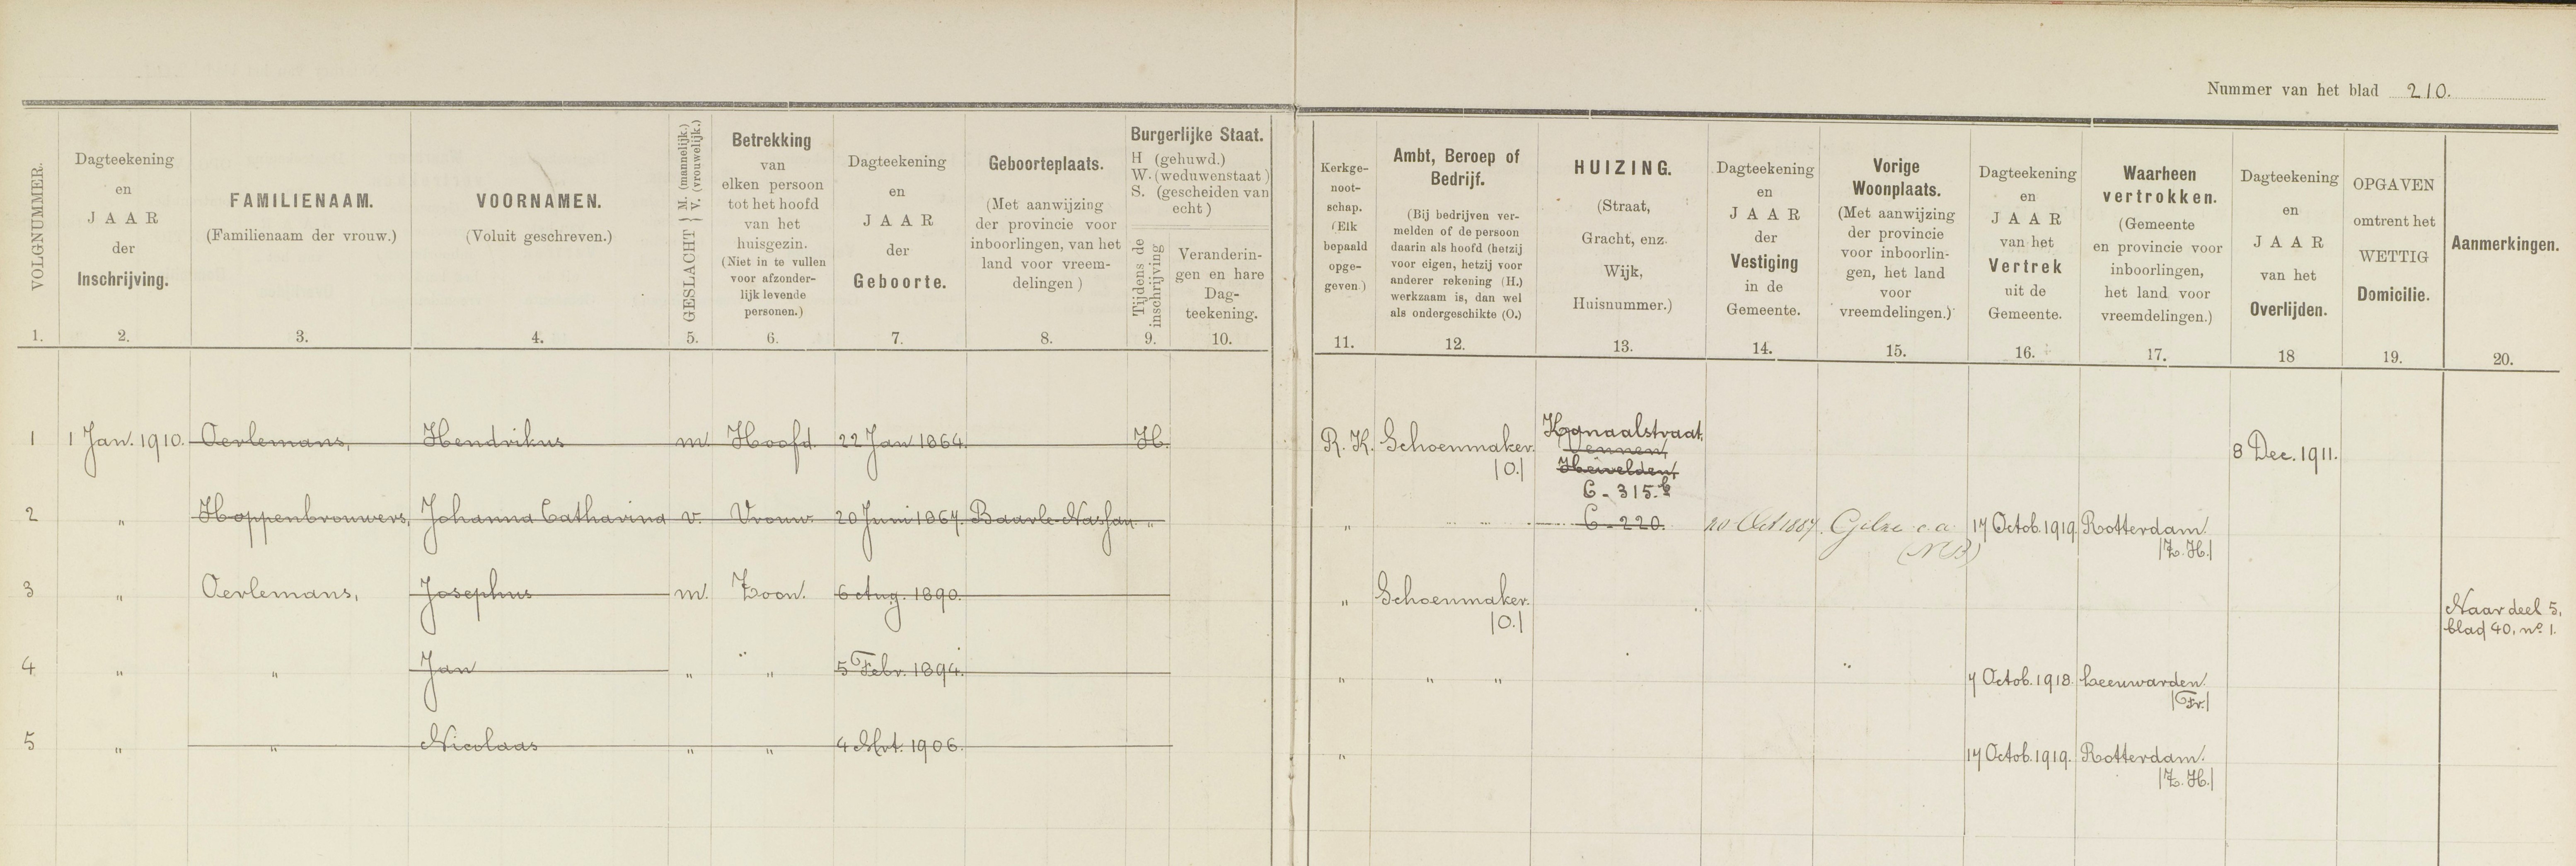 Nummer van het blad 210.
VOLGNUMMER.
1.
Dagteekening
en
JAAR
der
Inschrijving.
2.
FAMILIENAAM.
(Familienaam der vrouw.)
3.
VOORNAMEN.
(Voluit geschreven.)
4.
GESLACHT { M. (mannelijk.) V. (vrouwelijk.)
5.
Betrekking
van
elken persoon
tot het hoofd
van het
huisgezin.
(Niet in te vullen
voor afzonder-
lijk levende
personen.)
6.
Dagteekening
en
JAAR
der
Geboorte.
7.
Geboorteplaats.
(Met aanwijzing
der provincie voor
inboorlingen, van het
land voor vreem-
delingen)
8.
Burgerlijke Staat.
H (gehuwd.)
W. (weduwenstaat)
S. (gescheiden van
echt)
Tijdens de
inschrijving
9.
Veranderin-
gen en hare
Dag-
teekening.
10.
Kerkge-
noot-
schap.
(Elk
bepaald
opge-
geven.)
11.
Ambt, Beroep of
Bedrijf.
(Bij bedrijven ver-
melden of de persoon
daarin als hoofd (hetzij
voor eigen, hetzij voor
anderer rekening (H.)
werkzaam is, dan wel
als ondergeschikte (O.)
12.
HUIZING.
(Straat,
Gracht, enz.
Wijk,
Huisnummer.)
13.
Dagteekening
en
JAAR
der
Vestiging
in de
Gemeente.
14.
Vorige
Woonplaats.
(Met aanwijzing
der provincie
voor inboorlin-
gen, het land
voor
vreemdelingen.)
15.
Dagteekening
en
JAAR
van het
Vertrek
uit de
Gemeente.
16.
Waarheen
vertrokken.
(Gemeente
en provincie voor
inboorlingen,
het land voor
vreemdelingen.)
17.
Dagteekening
en
JAAR
van het
Overlijden.
18
OPGAVEN
omtrent het
WETTIG
Domicilie.
19.
Aanmerkingen.
20.
1 1 Jan. 1910. Oerlemans, Hendrikus m. Hoofd 22 Jan 1864. H. R. K. Schoenmaker. |O.| Kanaalstraat, Vennen, Heivelden, C-315.b 8 Dec. 1911.
2 " Hoppenbrouwers, Johanna Catharina v. Vrouw 20 Juni 1867. Baarle-Nassau " " C-220. 20 Oct 1887. Gilze c.a (NB) 17 Octob. 1919. Rotterdam. |Z. H.|
3 " Oerlemans, Josephus m. Zoon. 6 Aug. 1890. " Schoenmaker. |O.| Naar deel 5, blad 40, no. 1.
4 " " Jan " " 5 Febr. 1894. " " " 7 Octob. 1918. Leeuwarden. |Fr.|
5 " " Nicolaas " " 4 Mrt. 1906. " 17 Octob. 1919. Rotterdam. |Z. H.|